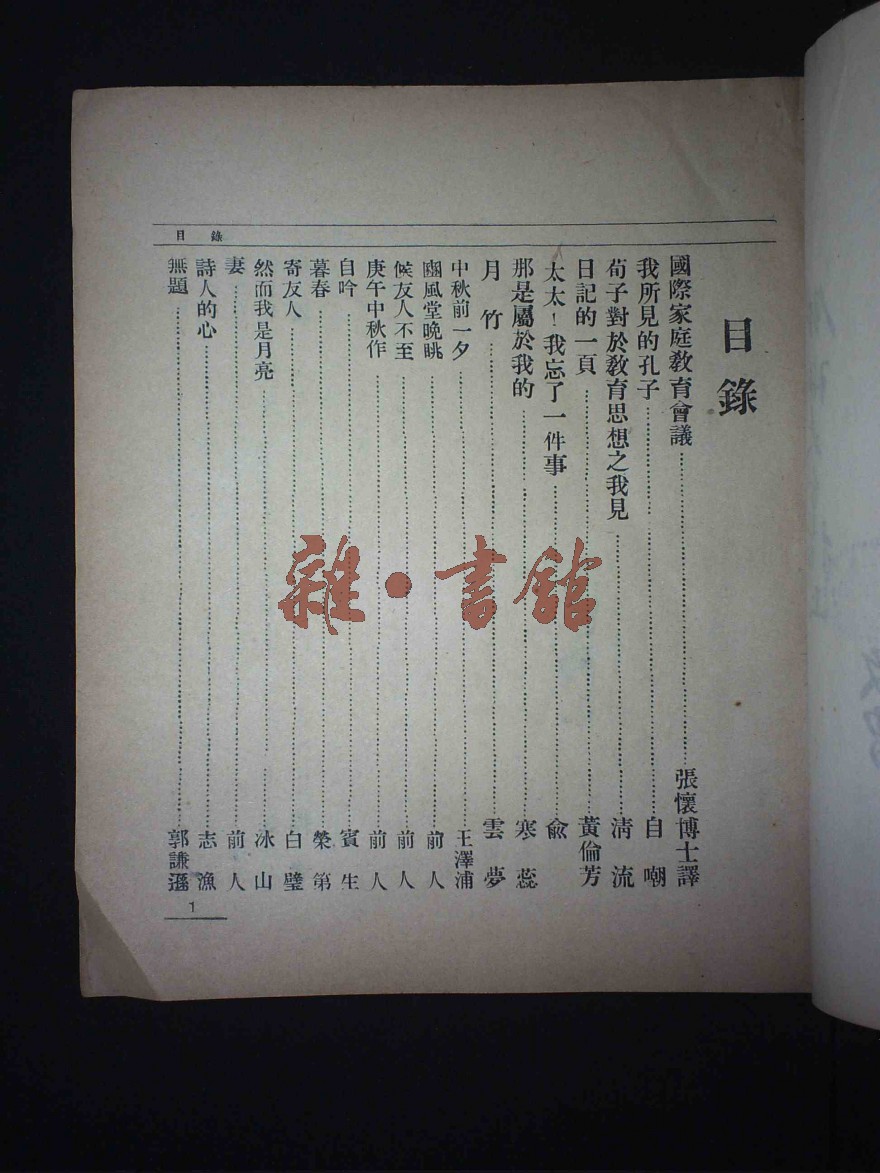 目錄
目錄
國際家庭敎育會議……張懷博士譯
我所見的孔子……自嘲
荀子對於敎育思想之我見……淸流
日記的一頁……黃倫芳
太太！我忘了一件事……兪
那是屬於我的……寒蕊
月竹……雲夢
中秋前一夕……王澤浦
豳風堂晚眺……前人
候友人不至……前人
庚午中秋作……前人
自吟……賓生
暮春……榮第
寄友人……白璧
然而我是月亮……冰山
妻……前人
詩人的心……志漁
無題……郭謙遜
1
雜·書館